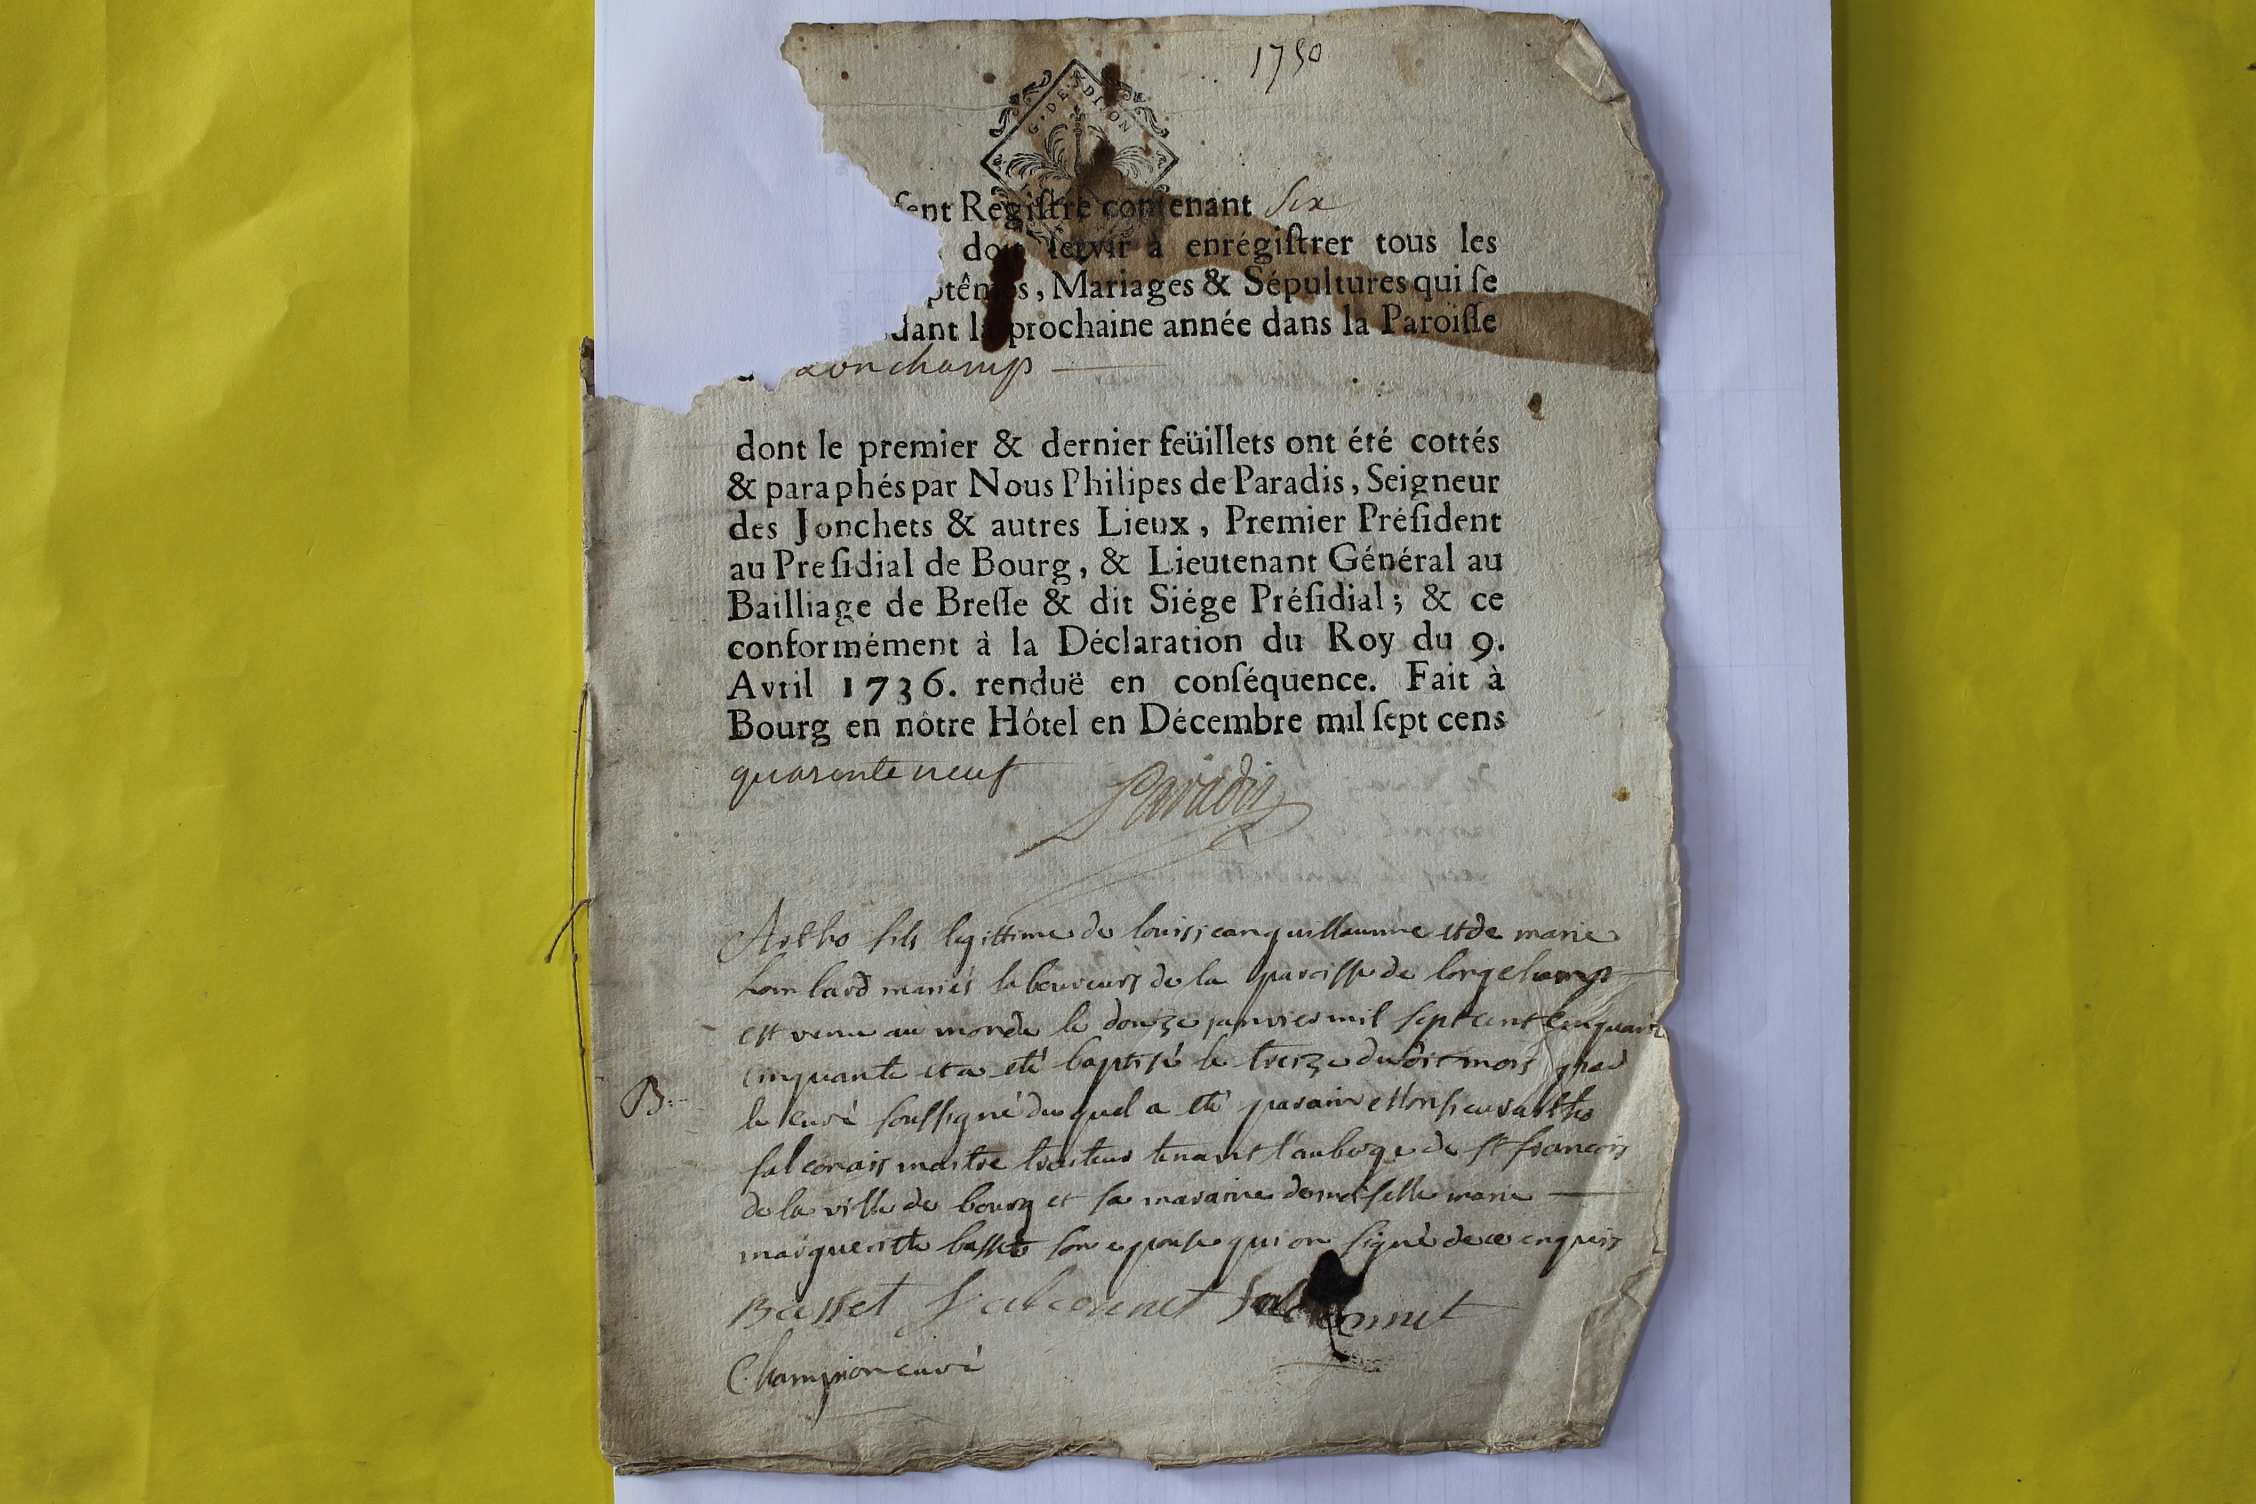 1750
G. DE DIJON
sent Registre contenant six
doit servir à enrégistrer tous les
ptêmes, Mariages & Sépultures qui se
dant la prochaine année dans la Paroisse
Lonchamp
dont le premier & dernier feüillets ont été cottés
& paraphés par Nous Philipes de Paradis, Seigneur
des Jonchets & autres Lieux, Premier Président
au Presidial de Bourg, & Lieutenant Général au
Bailliage de Bresse & dit Siége Présidial; & ce
conformément à la Déclaration du Roy du 9.
Avril 1736. renduë en conséquence. Fait à
Bourg en nôtre Hôtel en Décembre mil sept cens
quarente neuf
Paradis
fils legittime de louis jean guillaumme et de marie
lombard mariés laboureurs de la paroisse de longchamp
est venu au monde le douze janvier mil sept cent
cinquante et a eté baptisé le treize dudit mois
B.
le curé soussigné duquel a eté parain
falconais maitre traiteur tenant l'auberge de st francois
de la ville de bourg et sa maraine demoiselle marie
margueritte basset son epouse qui on signé de ce enquis
Basset falconnet falconnet
Champion curé